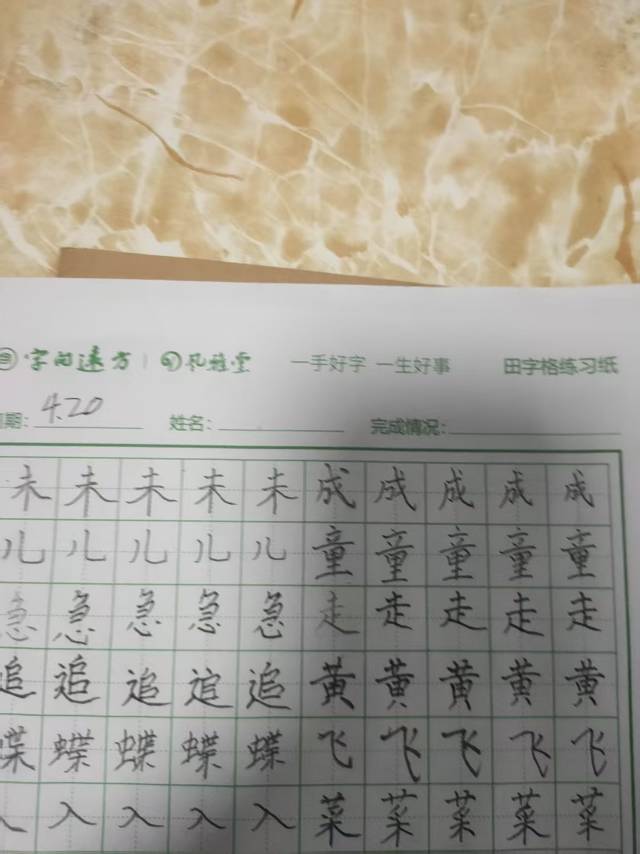 字的远方 孔雅堂 一手好字 一生好事 田字格练习纸
期: 4.20 姓名: 完成情况:
未 未 未 未 未 成 成 成 成 成
儿 儿 儿 儿 儿 童 童 童 童 童
急 急 急 急 急 走 走 走 走 走
追 追 追 追 追 黄 黄 黄 黄 黄
蝶 蝶 蝶 蝶 蝶 飞 飞 飞 飞 飞
入 入 入 入 入 菜 菜 菜 菜 菜